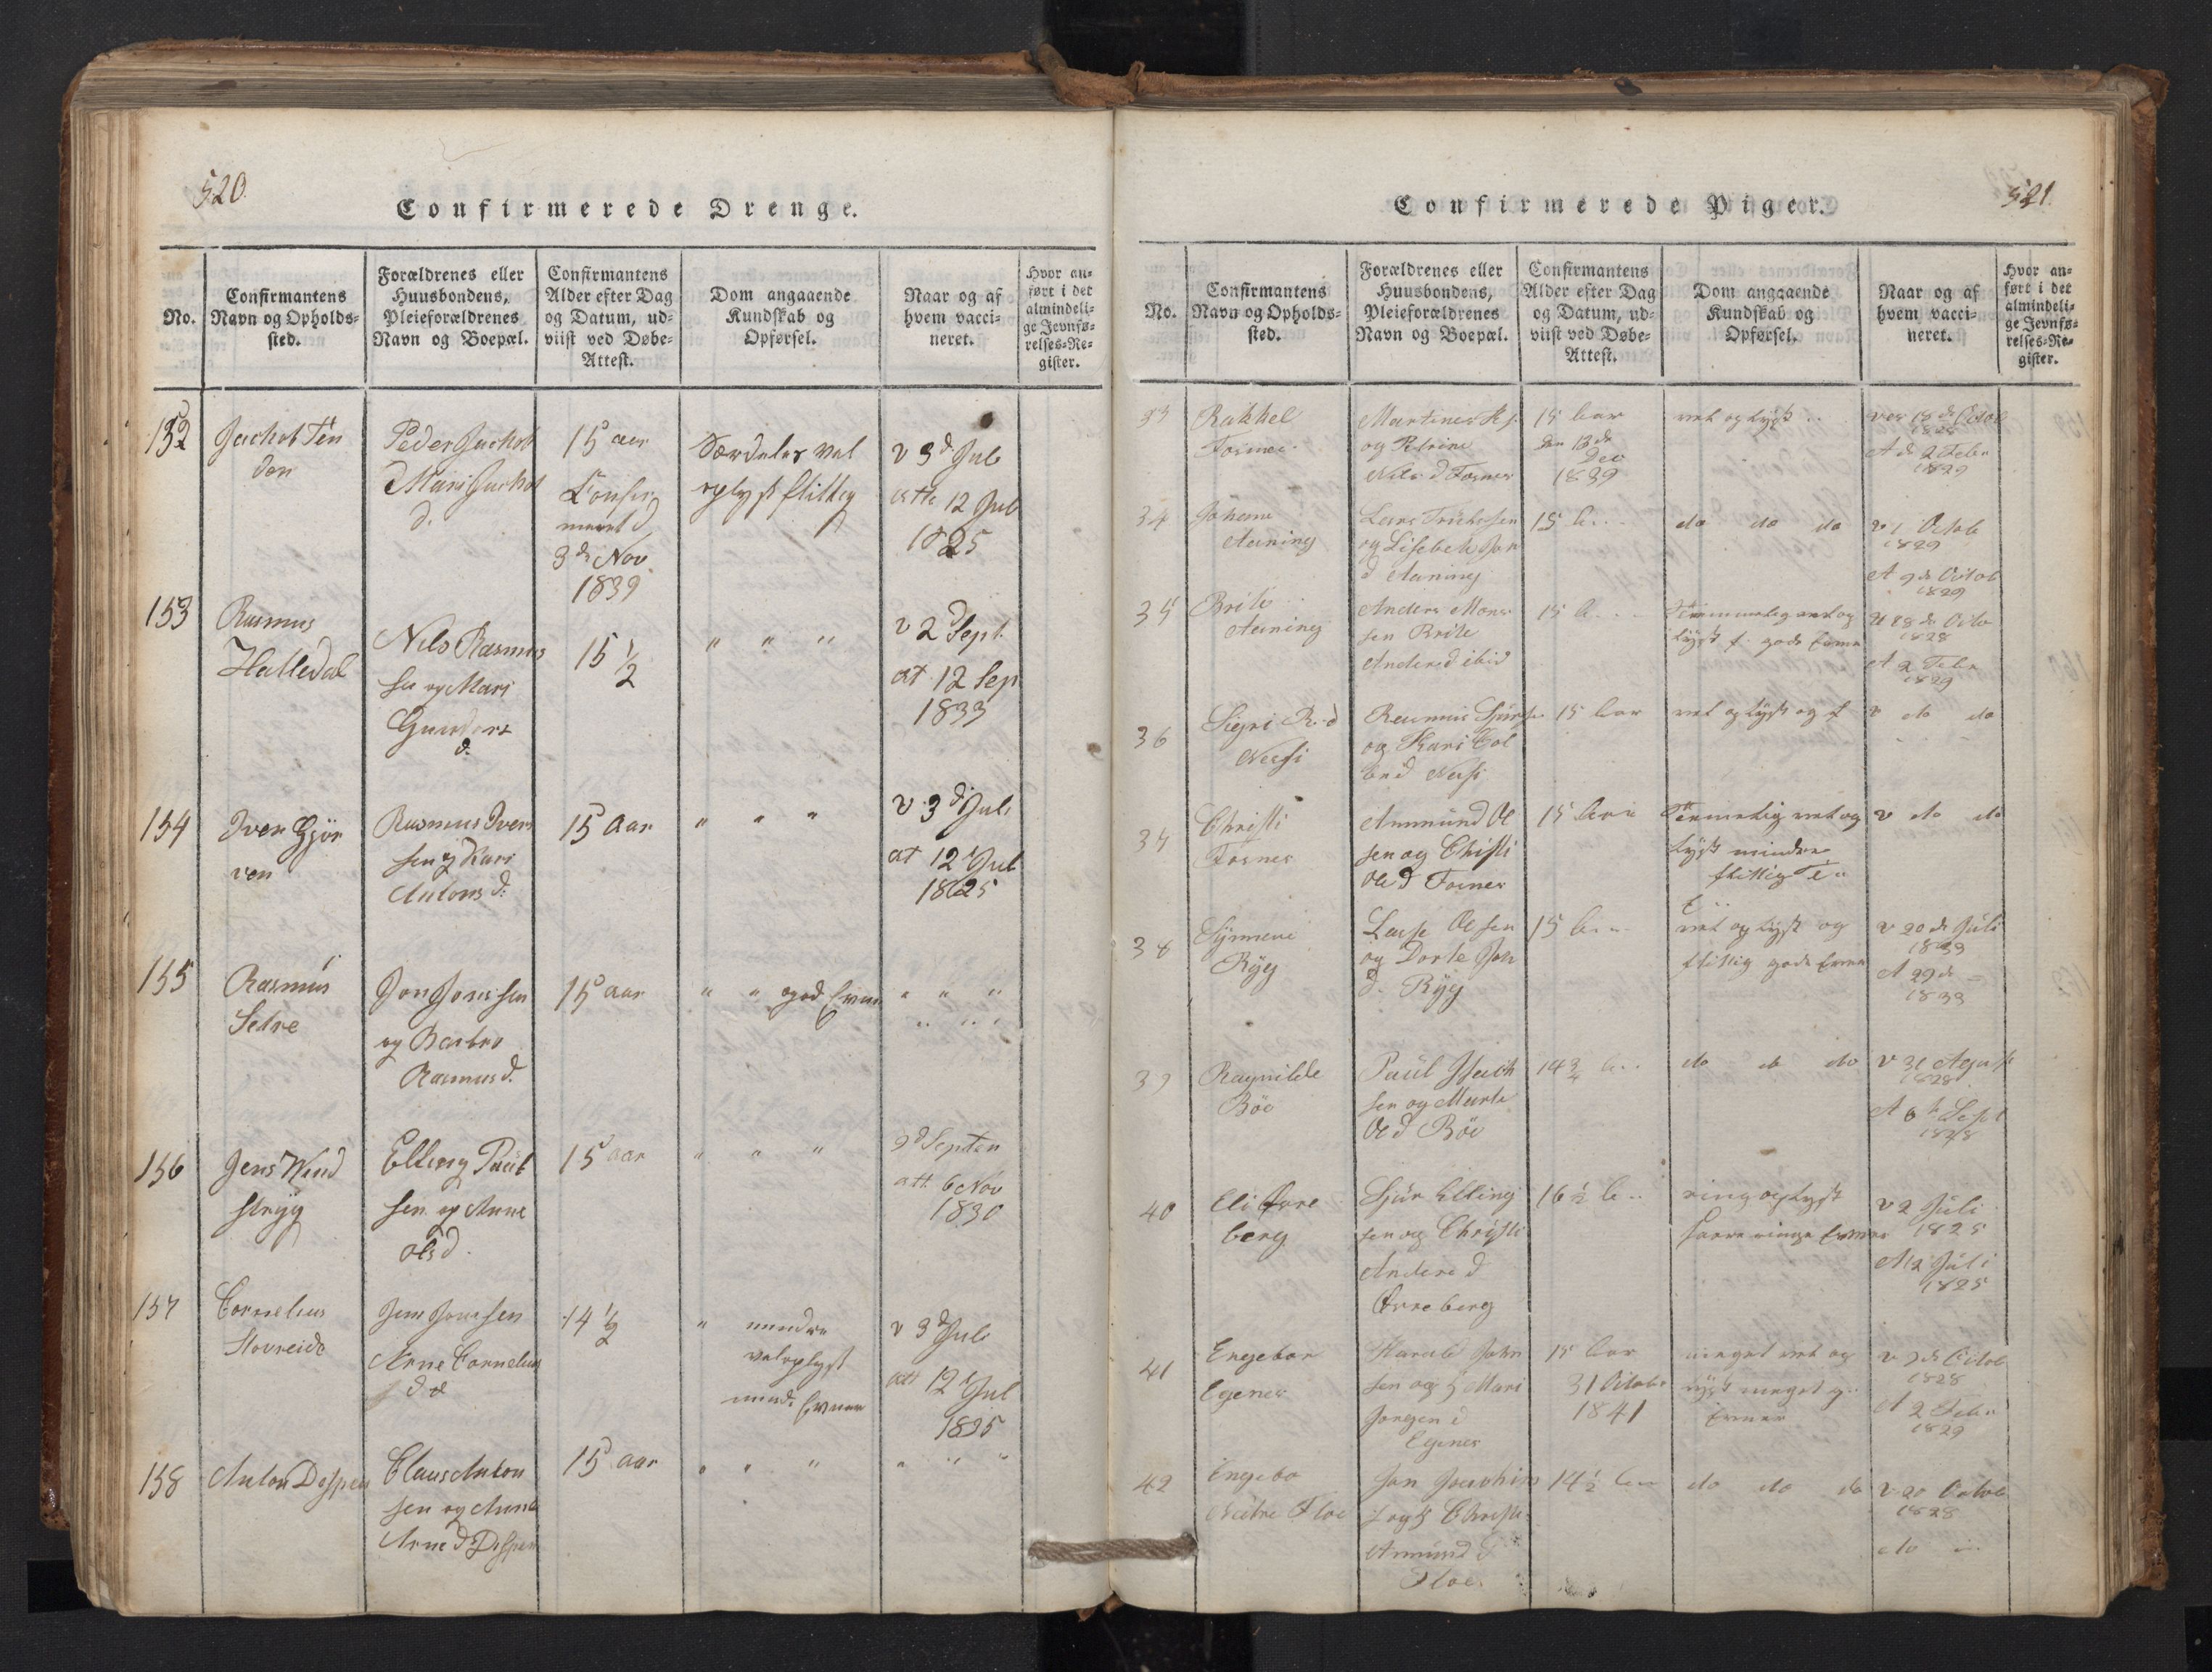 520.
Confirmerede Drenge.
No.
Confirmantens
Navn og Opholds-
sted.
Forældrenes eller
Huusbondens,
Pleieforældrenes
Navn og Boepæl.
Confirmantens
Alder efter Dag
og Datum, ud-
viist ved Døbe-
Attest.
Dom angaaende
Kundskab og
Opførsel.
Naar og af
hvem vacci-
neret.
Hvor an-
ført i det
almindeli-
ge Jevnfø-
relses-Re-
gister.
152
Jachob
Peder Jachob
Mari Jachob
d.
15 aar
Confir
meret d
3de Nov.
1839
Særdeles vel
oplyst flittig
v 3d Jul
att 12 Jul
1825
153
Rasmus
Halledal
Nils Rasmus
sen og Mari
Gunders
d.
15 1/2
" " "
v 2d Sept.
at 12 Sep
1833
154
Iver Gjør
ven
Rasmus Ivers
sen og Kari
Antons d.
15 Aar
" " "
v. 3d Juli
at 12 Jul
1825
155
Rasmus
Setre
Jon Jonssen
og Barbro
Rasmusd.
15 aar
" " " " "
156
Jens Wind
stryg
Elling Paul
sen og Anne
Olsd.
15 aar
" " "
2d Septem
att 6 Nov
1830
157
Cornelius
Hovreide
Jens Jonssen
Arne Cornelius
14 1/2
" mindre
vel oplyst
mind. Evner
v 3d Juli
att 12 Jul
1825
158
Anton Despen
Claus Anton
sen og Anne
Arne d Despen
15 aar
" " "
" " "
521.
Confirmerede Piger.
No.
Confirmantens
Navn og Opholds-
sted.
Forældrenes eller
Huusbondens,
Pleieforældrenes
Navn og Boepæl.
Confirmantens
Alder efter Dag
og Datum, ud-
viist ved Døbe-
Attest.
Dom angaaende
Kundskab og
Opførsel.
Naar og af
hvem vacci-
neret.
Hvor an-
ført i det
almindeli-
ge Jevnfø-
relses-Re-
gister.
33
Rakkel
Fosnes
Martines
og Petrine
Nils d Fosnes
15 Aar
Den 13de
Dec
1839
vel oplyst
18de Octob
1828
A d. 2 Febr
1829
34
Johanne
Aaning
Lars
og Lisebeth Jon
d Aaning
15
do do do
v 1 Octob
1829
A 9de Octob
1829
35
Brite
Aaning
Anders Mons
sen Brite
Andersd ibid
15
Temmelig vel op
lyst f. gode Evner
28de Octo
1828
A 2 Febr
1829
36
Sigri R.d
Rasmus
og Kari Col
bend
15 Aar
vel oplyst og f
v do do
37
Christi
Fosnes
Ammund Ol
sen og Christi
Ole d Fosnes
15
Temmelig vel op
lyst mindre
flittig
v do do
38
Synneve
Ryg
Lasse Olsen
og Dorte Jon
d. Ryg
15
vel oplyst og
flittig gode Evner
v 20de Juli
1833
A 29de
1833
39
Ragnilde
Böe
Paul Isach
sen og Marte
Ole d Böe
14 3/4
do do do
v 31 August
1828
A 6te Sept
1828
40
Eli Orre
berg
Sjur Elling
sen og Christi
Anders d
Orreberg
16 1/2
ring oplyst
saare ringe Evner
v 2 Juli
1825
A 12 Juli
1825
41
Engebor
Egenes
Harald John
sen og Mari
Jorgen d
Egenes
15 Aar
31 Octobr
1841
meget vel op
lyst meget g.
Evner
v 7de Octob
1828
A 2 Febr
1829
42
Engebo
Floe
Jon Joachim
s og Christi
Ammund d
Floe
14 1/2
do do do
v 20 Octob
1828
do